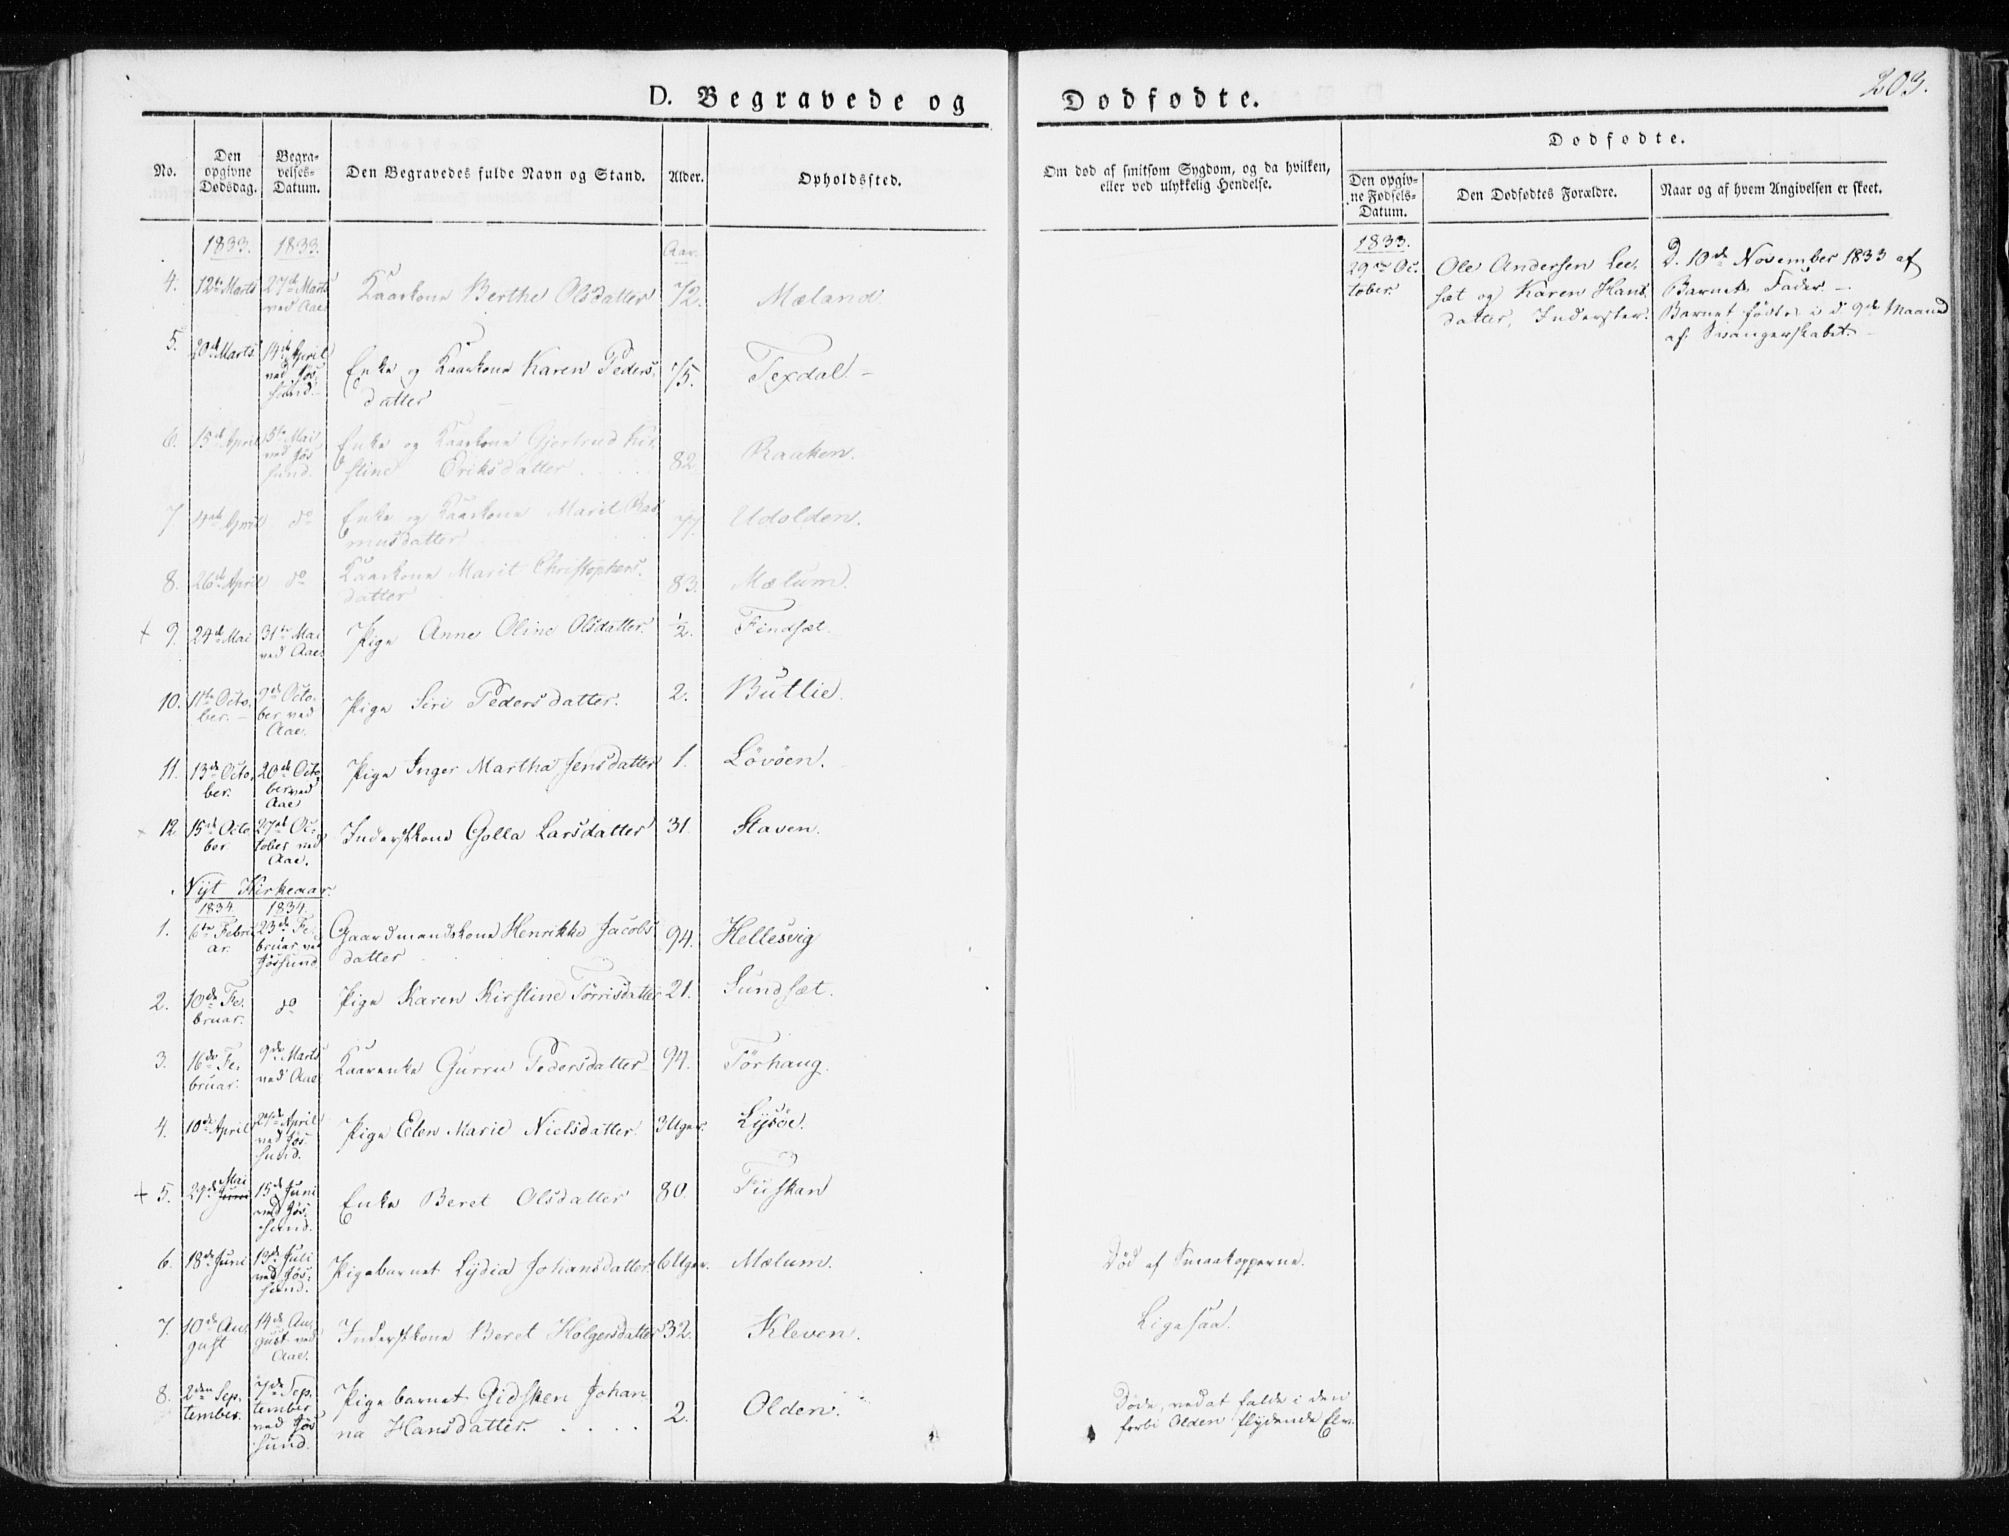 203.
D. Begravede og Dødfødte.
No.
Den opgivne Dødsdag.
Begravelses-Datum.
Den Begravedes fulde Navn og Stand.
Alder.
Opholdssted.
Om død af smitsom Sygdom, og da hvilken, eller ved ulykkelig Hendelse.
Dødfødte.
Den opgivne Fødsels-Datum.
Den Dødfødtes Forældre.
Naar og af hvem Angivelsen er skeet.
1833. 1833. Aar.
4. 12te Marts 27de Marts ved Aae. Kaarkone Berthe Olsdatter 72. Mæland.
5. 20de Marts 14de April ved Jøssund. Enke og Kaarkone Karen Pedersdatter 75. Texdal.
6. 15de April 5te Mai ved Jøssund. Enke og Kaarkone Gjertrud Kirstine Eriksdatter 82. Raaken.
7 April do Enke og Kaarkone Marit Rasmusdatter 77. Udolden.
8. 26de April do Kaarkone Marit Christophersdatter 83. Mælum.
+ 9. 24de Mai 31te Mai ved Aae. Pige Anne Oline Olsdatter. 1/2. Findsæt.
10. 11te October. October ved Aae. Pige Siri Pedersdatter. 2. Butlie.
11. 13de October. 20de October ved Aae Pige Inger Martha Jensdatter 1. Løvøen.
+ 12. 15de October 27de October ved Aae. Inderstkone Golla Larsdatter 31. Staven.
Nyt Kirkeaar.
1834. 1834.
1. 6te Februar. 23de Februar ved Jøssund Gaardmandskone Henrikke Jacobsdatter 94. Hellesvig
2. 10de Februar. do Pige Karen Kirstine Tørrisdatter 21. Sundsæt.
3. 16de Februar. 9de Marts ved Aae Kaarenke Gurru Pedersdatter 94. Tørhaug.
4. 10de April April ved Jøssund. Pige Elen Marie Nielsdatter. 3 Uger. Lysøe.
+ 5. 29de Mai 15de Juni ved Jøssund. Enke Beret Olsdatter 80. Fuskan
6. 18de Juni 13de Juli ved Jøssund. Pigebarnet Lydia Johansdatter. 6 Uger. Mælum. Død af Smaakopperne.
7. 10de August 14de August ved Aae. Inderstkone Beret Holgersdatter 32. Kleven. Ligesaa.
8. 2den September. 7de September ved Jøssund. Pigebarnet Gidsken Johanna Hansdatter. 2. Olden. Døde, ved at falde i den forbi Olden flydende Elv.
1833.
29de October. Ole Andersen Leesæt og Karen Hansdatter, Inderster. D. 10de November 1833 af Barnets Fader. Barnet fødtes i d. 9de Maaned af Svangerskabet.